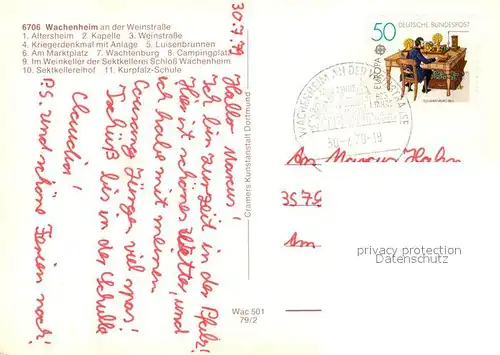 6706 Wachenheim an der Weinstraße
1. Altersheim 2. Kapelle 3. Weinstraße
4. Kriegerdenkmal mit Anlage 5. Luisenbrunnen
6. Am Marktplatz 7. Wachtenburg 8. Campingplatz
9. Im Weinkeller der Sektkellerei Schloß Wachenheim
10. Sektkellereihof 11. Kurpfalz-Schule
30.7.79
Hallo Marcus!
Ich bin zurzeit in der Pfalz!
Hier ist schönes Wetter, und
ich habe mit meinem
Cousin Jürgen viel spas!
Tschüß bis in der Schule
Claudia!
P.S. und schöne Ferien noch!
Cramers Kunstanstalt Dortmund
Wac 501
79/2
50
DEUTSCHE BUNDESPOST
EUROPA
WACHENHEIM AN DER WEINSTRASSE
30.-7.79-19
An Marcus Hahn
357
Am
privacy protection
Datenschutz